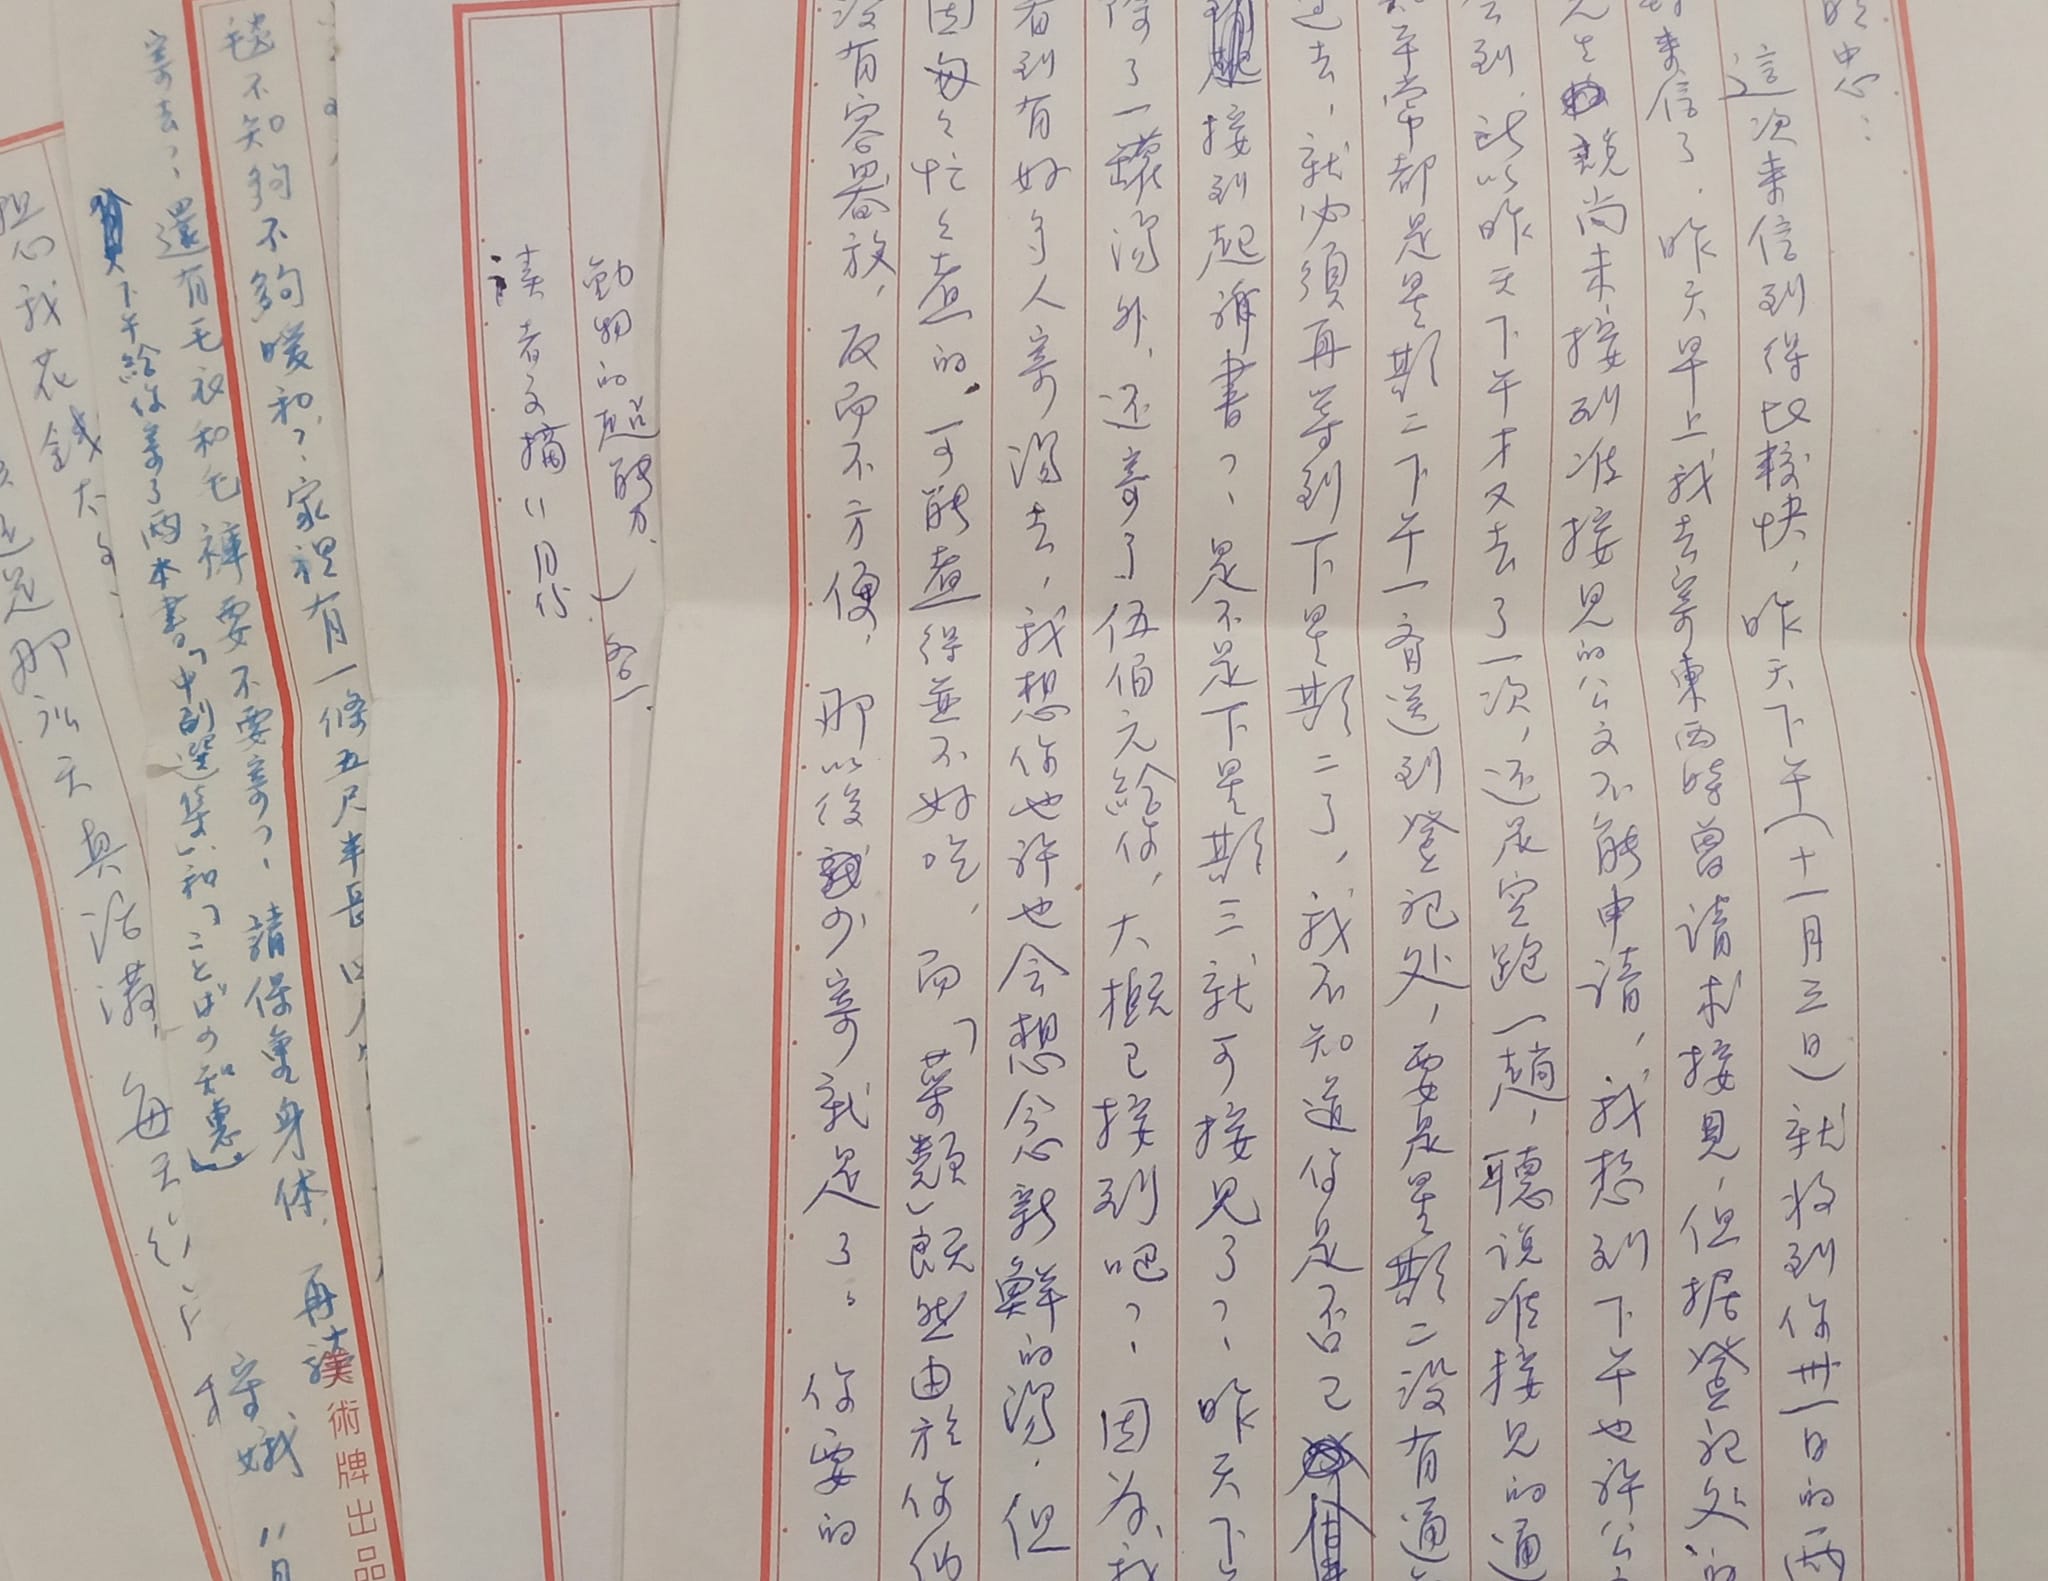 忠：
這次來信到得比較快，昨天下午（十一月三日）就收到你卅一日的兩
封來信了．昨天早上我去寄東西時曾請求接見，但据登記处的
先生說尚未接到准接見的公文不能申請，我想到下午也許公文
会到，所以昨天下午才又去了一次，还是空跑一趟，聽説准接見的通
平常都是星期二下午一齊送到登記处，要是星期二没有通
过去，就必須再等到下星期二了，我不知道你是否已
接到起訴書？是不是下星期三就可接見了？昨天下
除了一罐湯外，还寄了伍佰元給你，大概已接到吧？因为我
看到有好多人寄湯去，我想你也許也会想念新鮮的湯，但
因匆々忙々煮的，可能煮得並不好吃，而「葉類」既然由於你們
没有容器放，反而不方便，那以後就少寄就是了。你要的
動物的超能力）
讀者文摘11月份
毯不知夠不夠暖和？家裡有一條五尺半長
寄去？還有毛衣和毛褲要不要寄？請保重身体．再讀
下午給你寄了兩本書「中副選集」和「ことばの知惠」
梓娥 11月
担心我花錢太多：
還是那么天真活潑，每天
美術牌出品